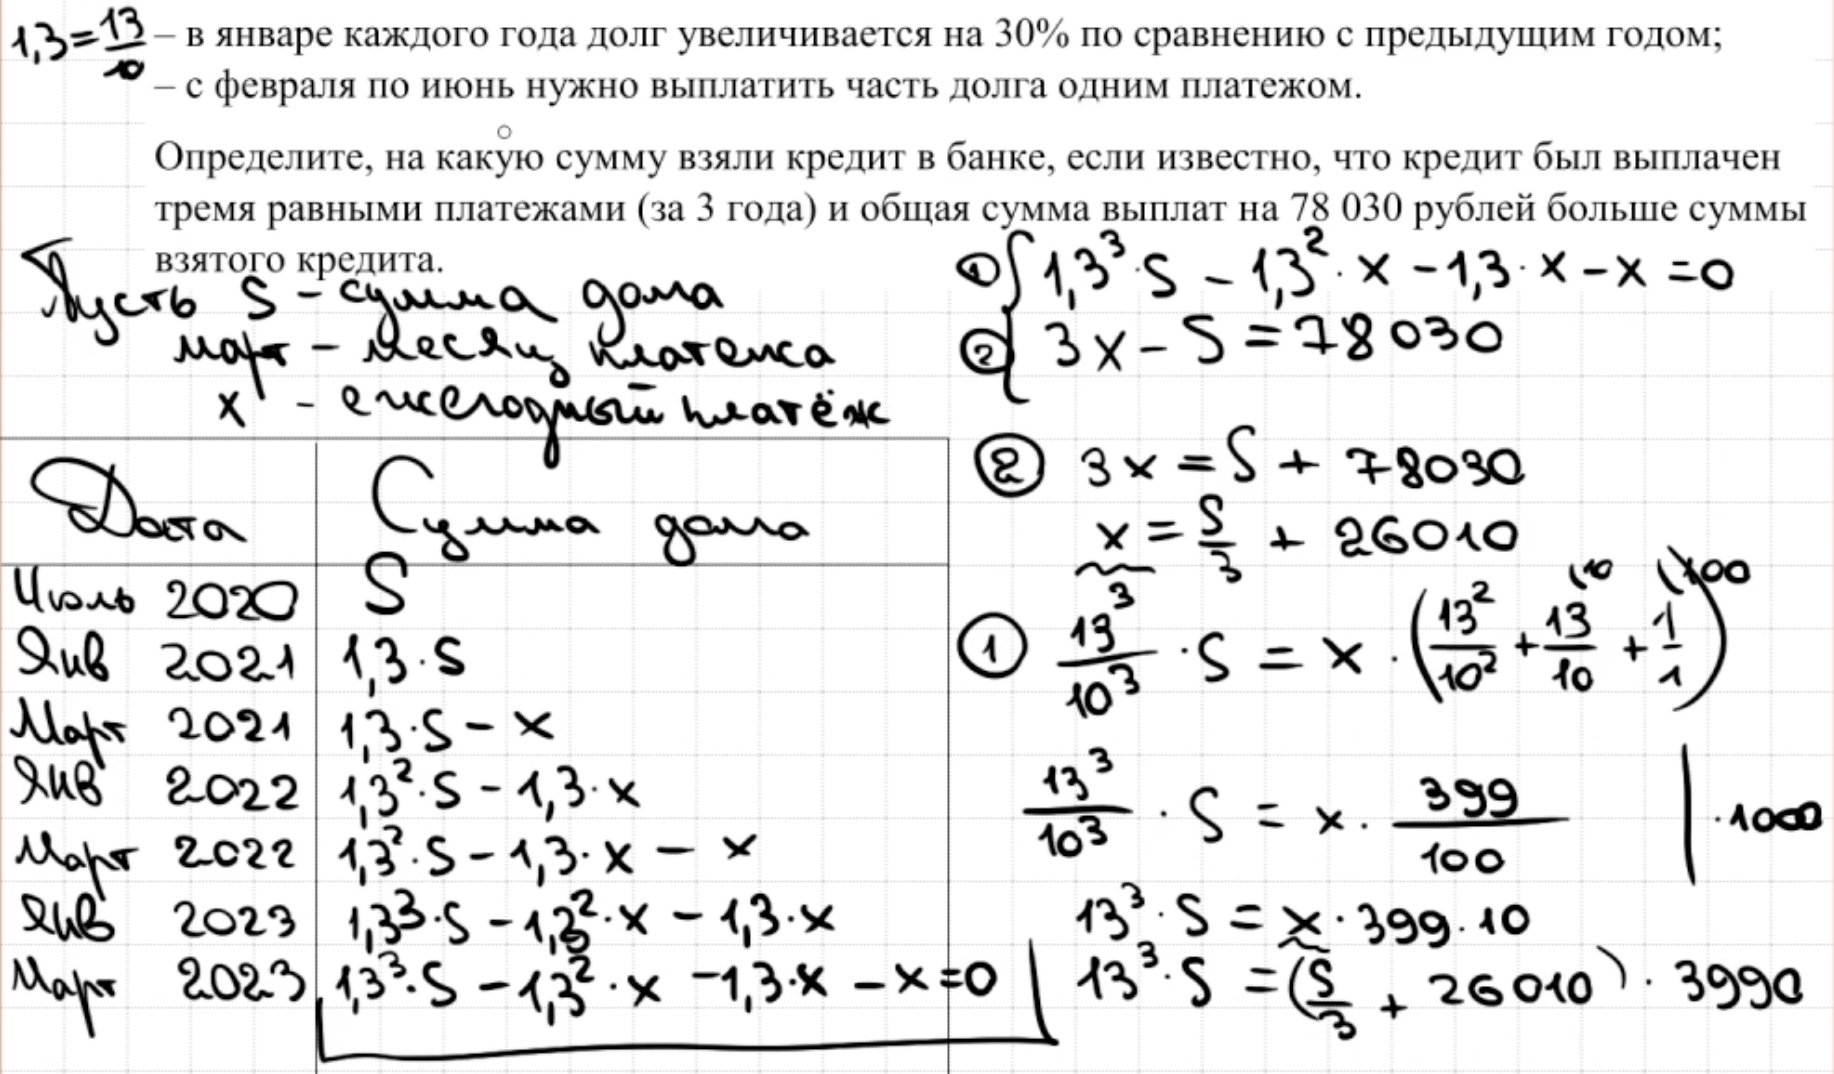 1,3 = 13/10
– в январе каждого года долг увеличивается на 30% по сравнению с предыдущим годом;
– с февраля по июнь нужно выплатить часть долга одним платежом.
Определите, на какую сумму взяли кредит в банке, если известно, что кредит был выплачен
тремя равными платежами (за 3 года) и общая сумма выплат на 78 030 рублей больше суммы
взятого кредита.
Пусть S – сумма долга
март – месяц платежа
x – ежегодный платёж
Дата Сумма долга
Июль 2020 S
Янв 2021 1,3·S
Март 2021 1,3·S – x
Янв 2022 1,3²·S – 1,3·x
Март 2022 1,3²·S – 1,3·x – x
Янв 2023 1,3³·S – 1,3²·x – 1,3·x
Март 2023 1,3³·S – 1,3²·x – 1,3·x – x = 0
① { 1,3³·S – 1,3²·x – 1,3·x – x = 0
② { 3x – S = 78030
② 3x = S + 78030
x = S/3 + 26010
① 13³/10³ ·S = x·(13²/10² + 13/10 \10 + 1/1 \100)
13³/10³ · S = x · 399/100 | ·1000
13³·S = x·399·10
13³·S = (S/3 + 26010)·3990